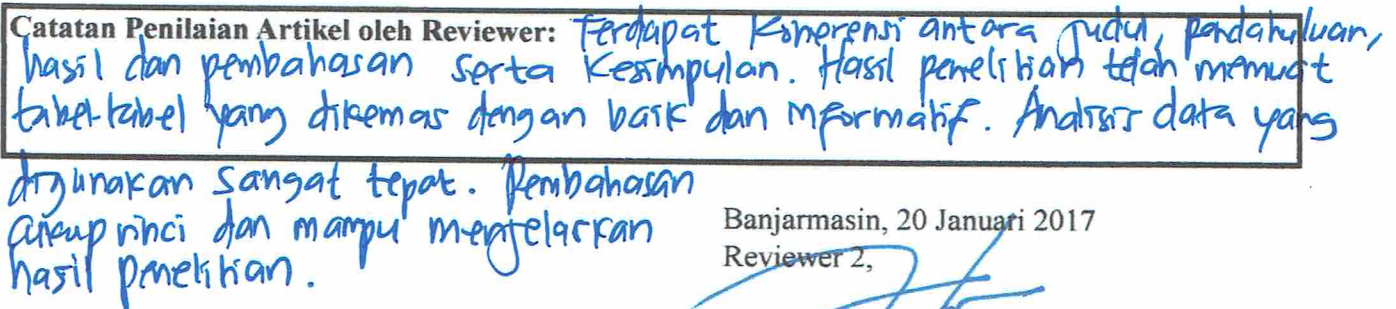 Catatan Penilaian Artikel oleh Reviewer: Terdapat Koherensi antara judul, pendahuluan,
hasil dan pembahasan serta Kesimpulan. Hasil penelitian telah memuat
tabel-tabel yang dikemas dengan baik dan informatif. Analisis data yang
digunakan sangat tepat. Pembahasan
cukup rinci dan mampu menjelaskan
hasil penelitian.
Banjarmasin, 20 Januari 2017
Reviewer 2,